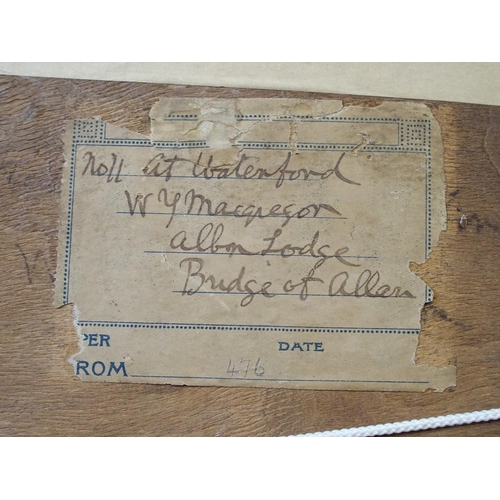 No 11 At Waterford
W Y Macgregor
Albyn Lodge
Bridge of Allan
PER DATE
ROM 476